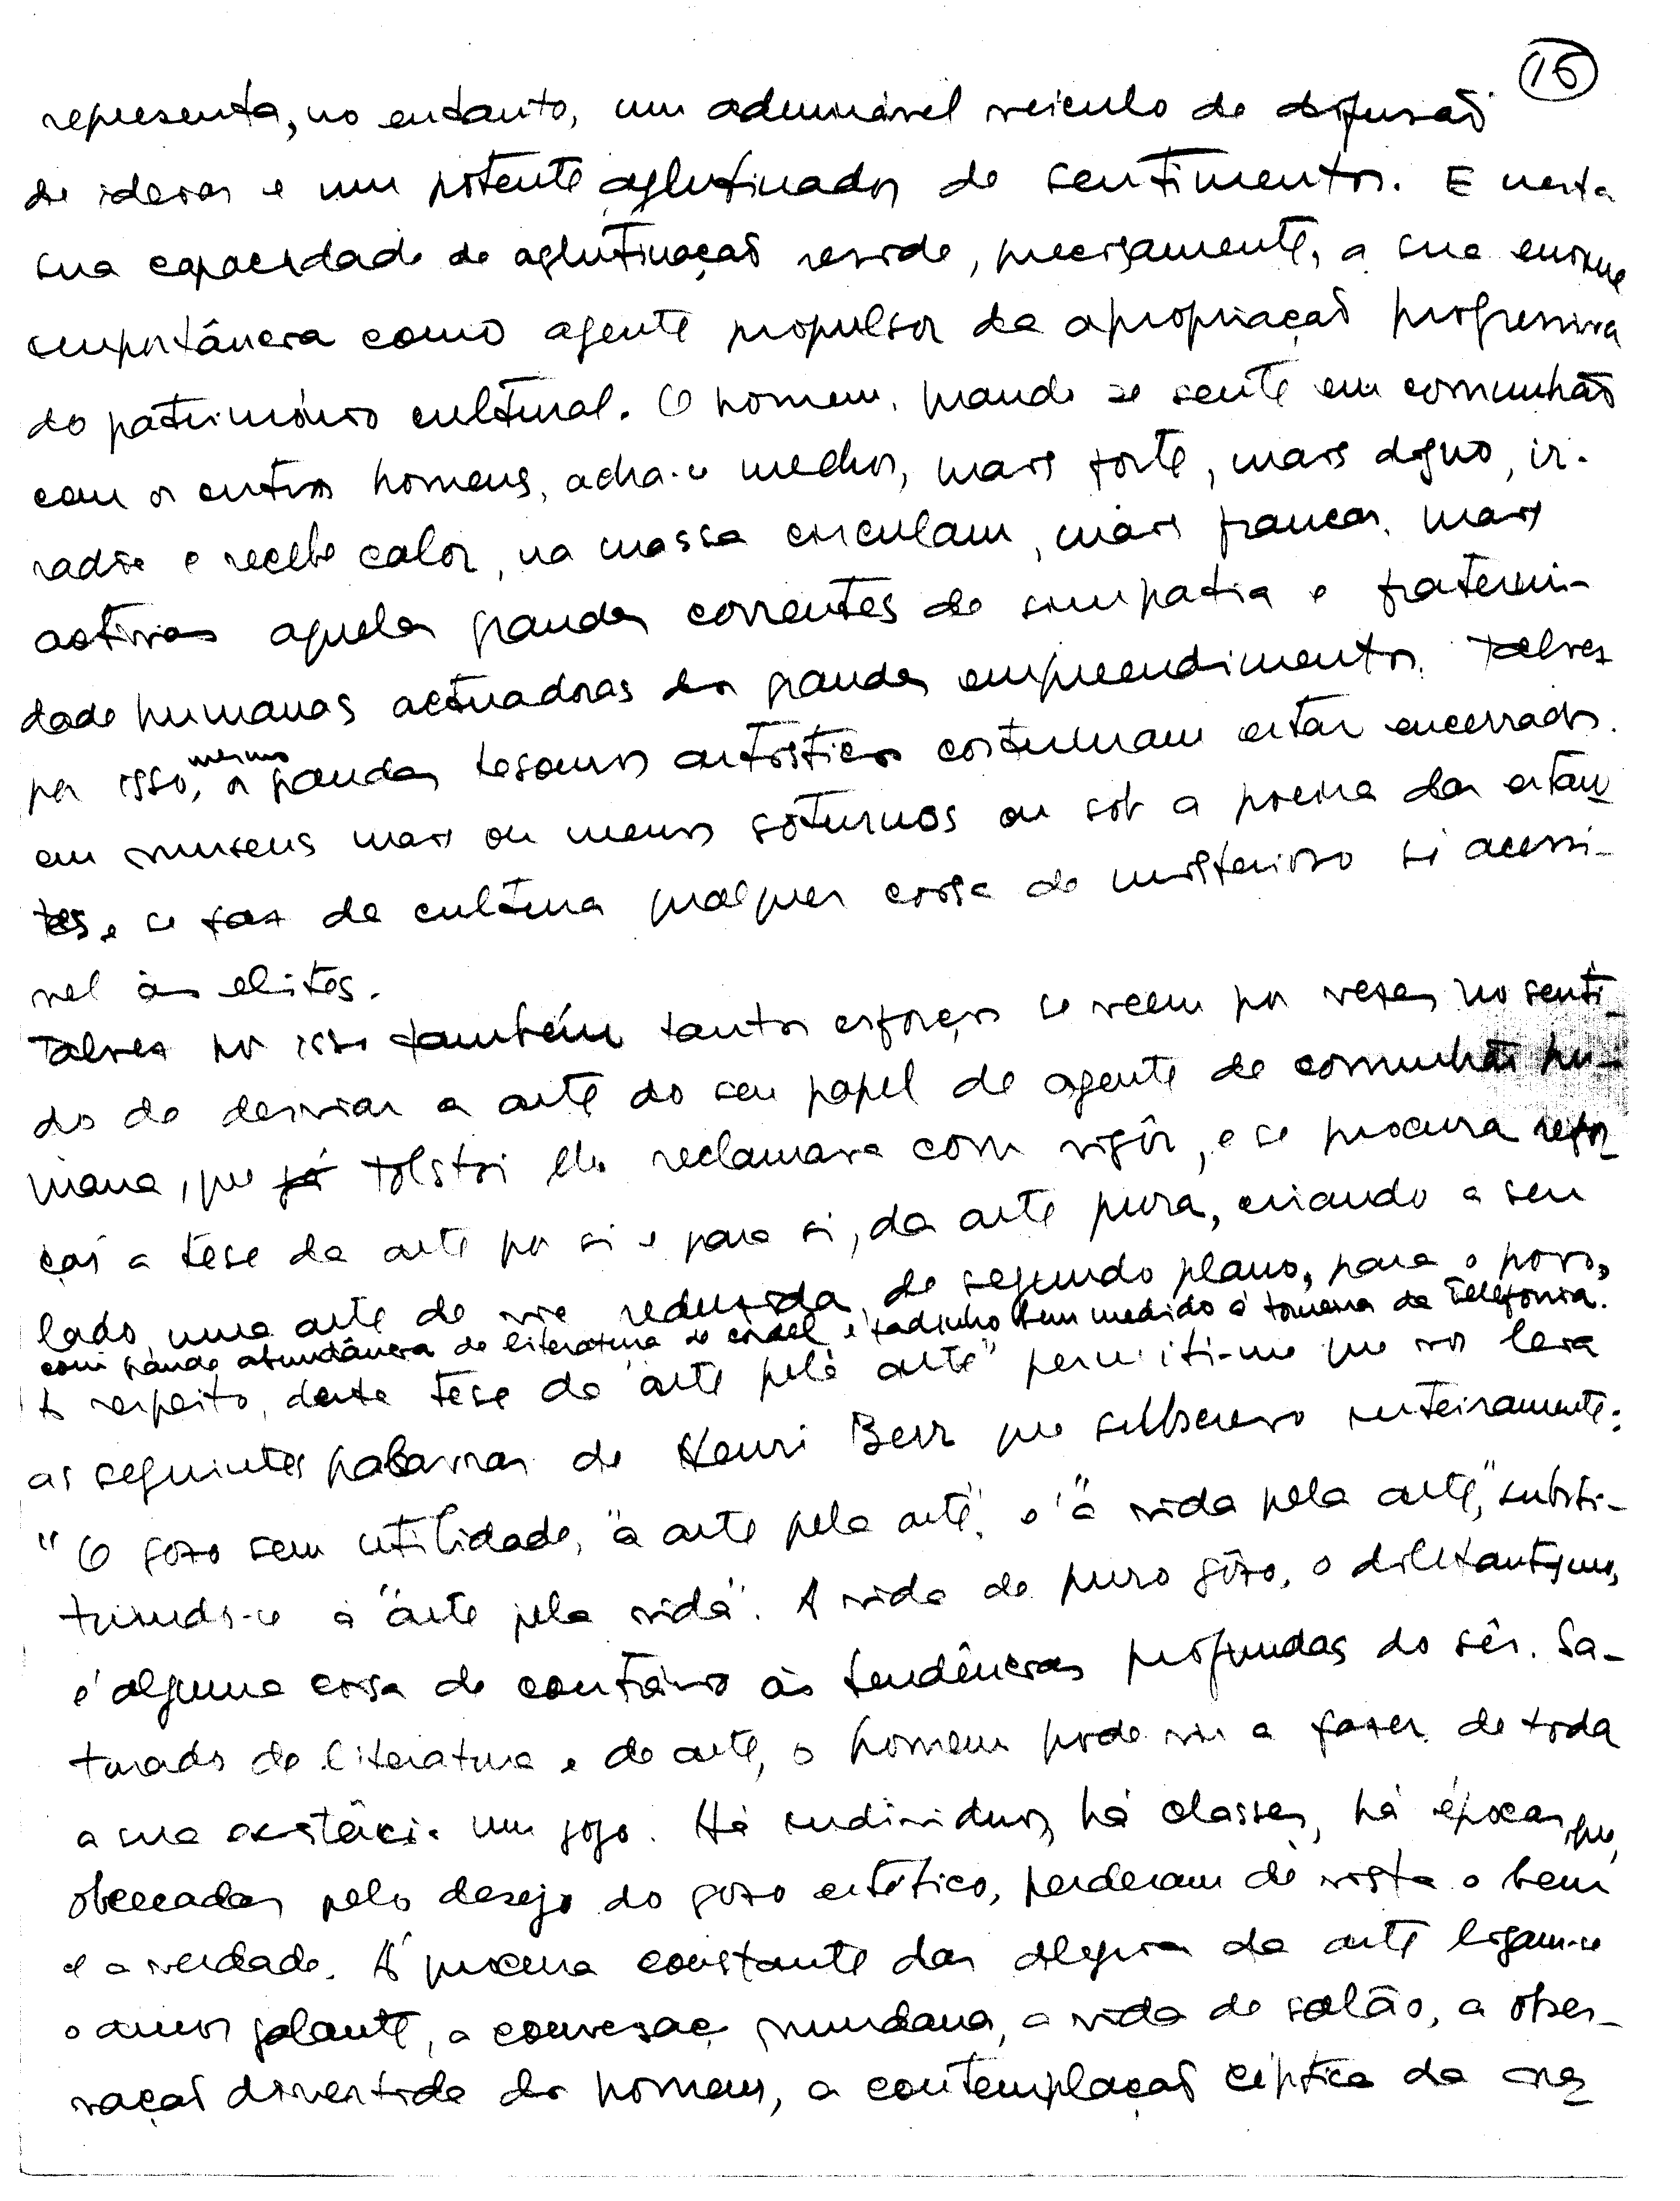 16
representa, no entanto, um admirável veiculo de difusão
de ideias e um potente aglutinador de sentimentos. E nesta
sua capacidade de aglutinação reside, precisamente, a sua enorme
importância como agente propulsor da apropriação progressiva
do património cultural. O homem, quando se sente em comunhão
com os outros homens, acha-se melhor, mais forte, mais digno, ir-
radia e recebe calor, na massa circulam, mais francas, mais
activas aquelas grandes correntes de simpatia e fraterni-
dade humanas actuadoras dos grandes empreendimentos. Talvez
por isso, mesmo os grandes tesouros artísticos costumam estar encerrados
em museus mais ou menos soturnos ou sob a poeira das estan
tes, e se faz da cultura qualquer coisa de misterioso só acessi-
vel às elites.
Talvez por isso também tantos esforços se veem por vezes no senti-
do de desviar a arte do seu papel de agente de comunhão hu-
mana, que já Tolstoi lhe reclamava com vigôr, e se procura refor
çar a tese da arte por si e para si, da arte pura, criando a seu
lado uma arte de via reduzida, de segundo plano, para o povo,
com grande abundância de literatura de cordel e fadinho bem medido à torneira da Telefonia.
A respeito, desta tese da "arte pela arte" permiti-me que vos leia
as seguintes palavras de Henri Berr que subscrevo inteiramente:
"O gozo sem utilidade, "a arte pela arte", e "a vida pela arte," substi-
tuindo-se à "arte pela vida". A vida de puro gôzo, o diletantismo,
é alguma coisa de contrário às tendências profundas do sêr. Sa-
turado de literatura e de arte, o homem pode vir a fazer de toda
a sua existência um jogo. Há individuos, há classes, há épocas, que,
obcecadas pelo desejo do gozo estético, perderam de vista o bem
e a verdade. À procura constante das alegrias da arte ligam-se
o amor galante, a conversação mundana, a vida de salão, a obser-
vação divertida dos homens, a contemplação céptica da